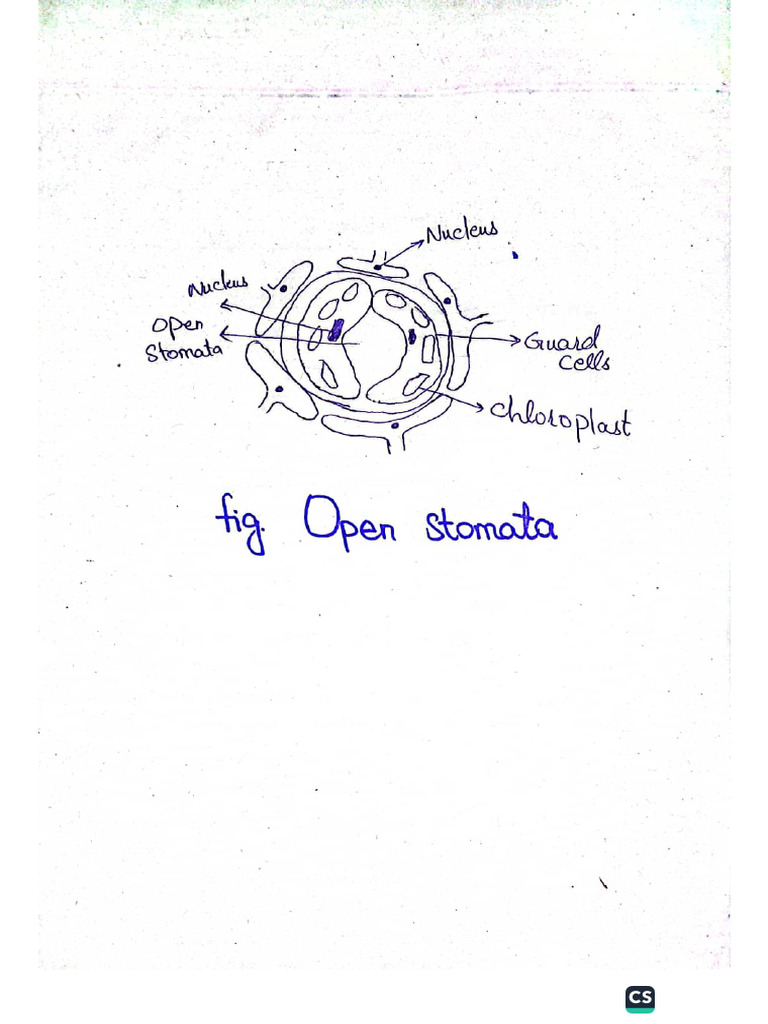 Nucleus
Nucleus
Open
Stomata
Guard
cells
chloroplast
fig. Open stomata
CS